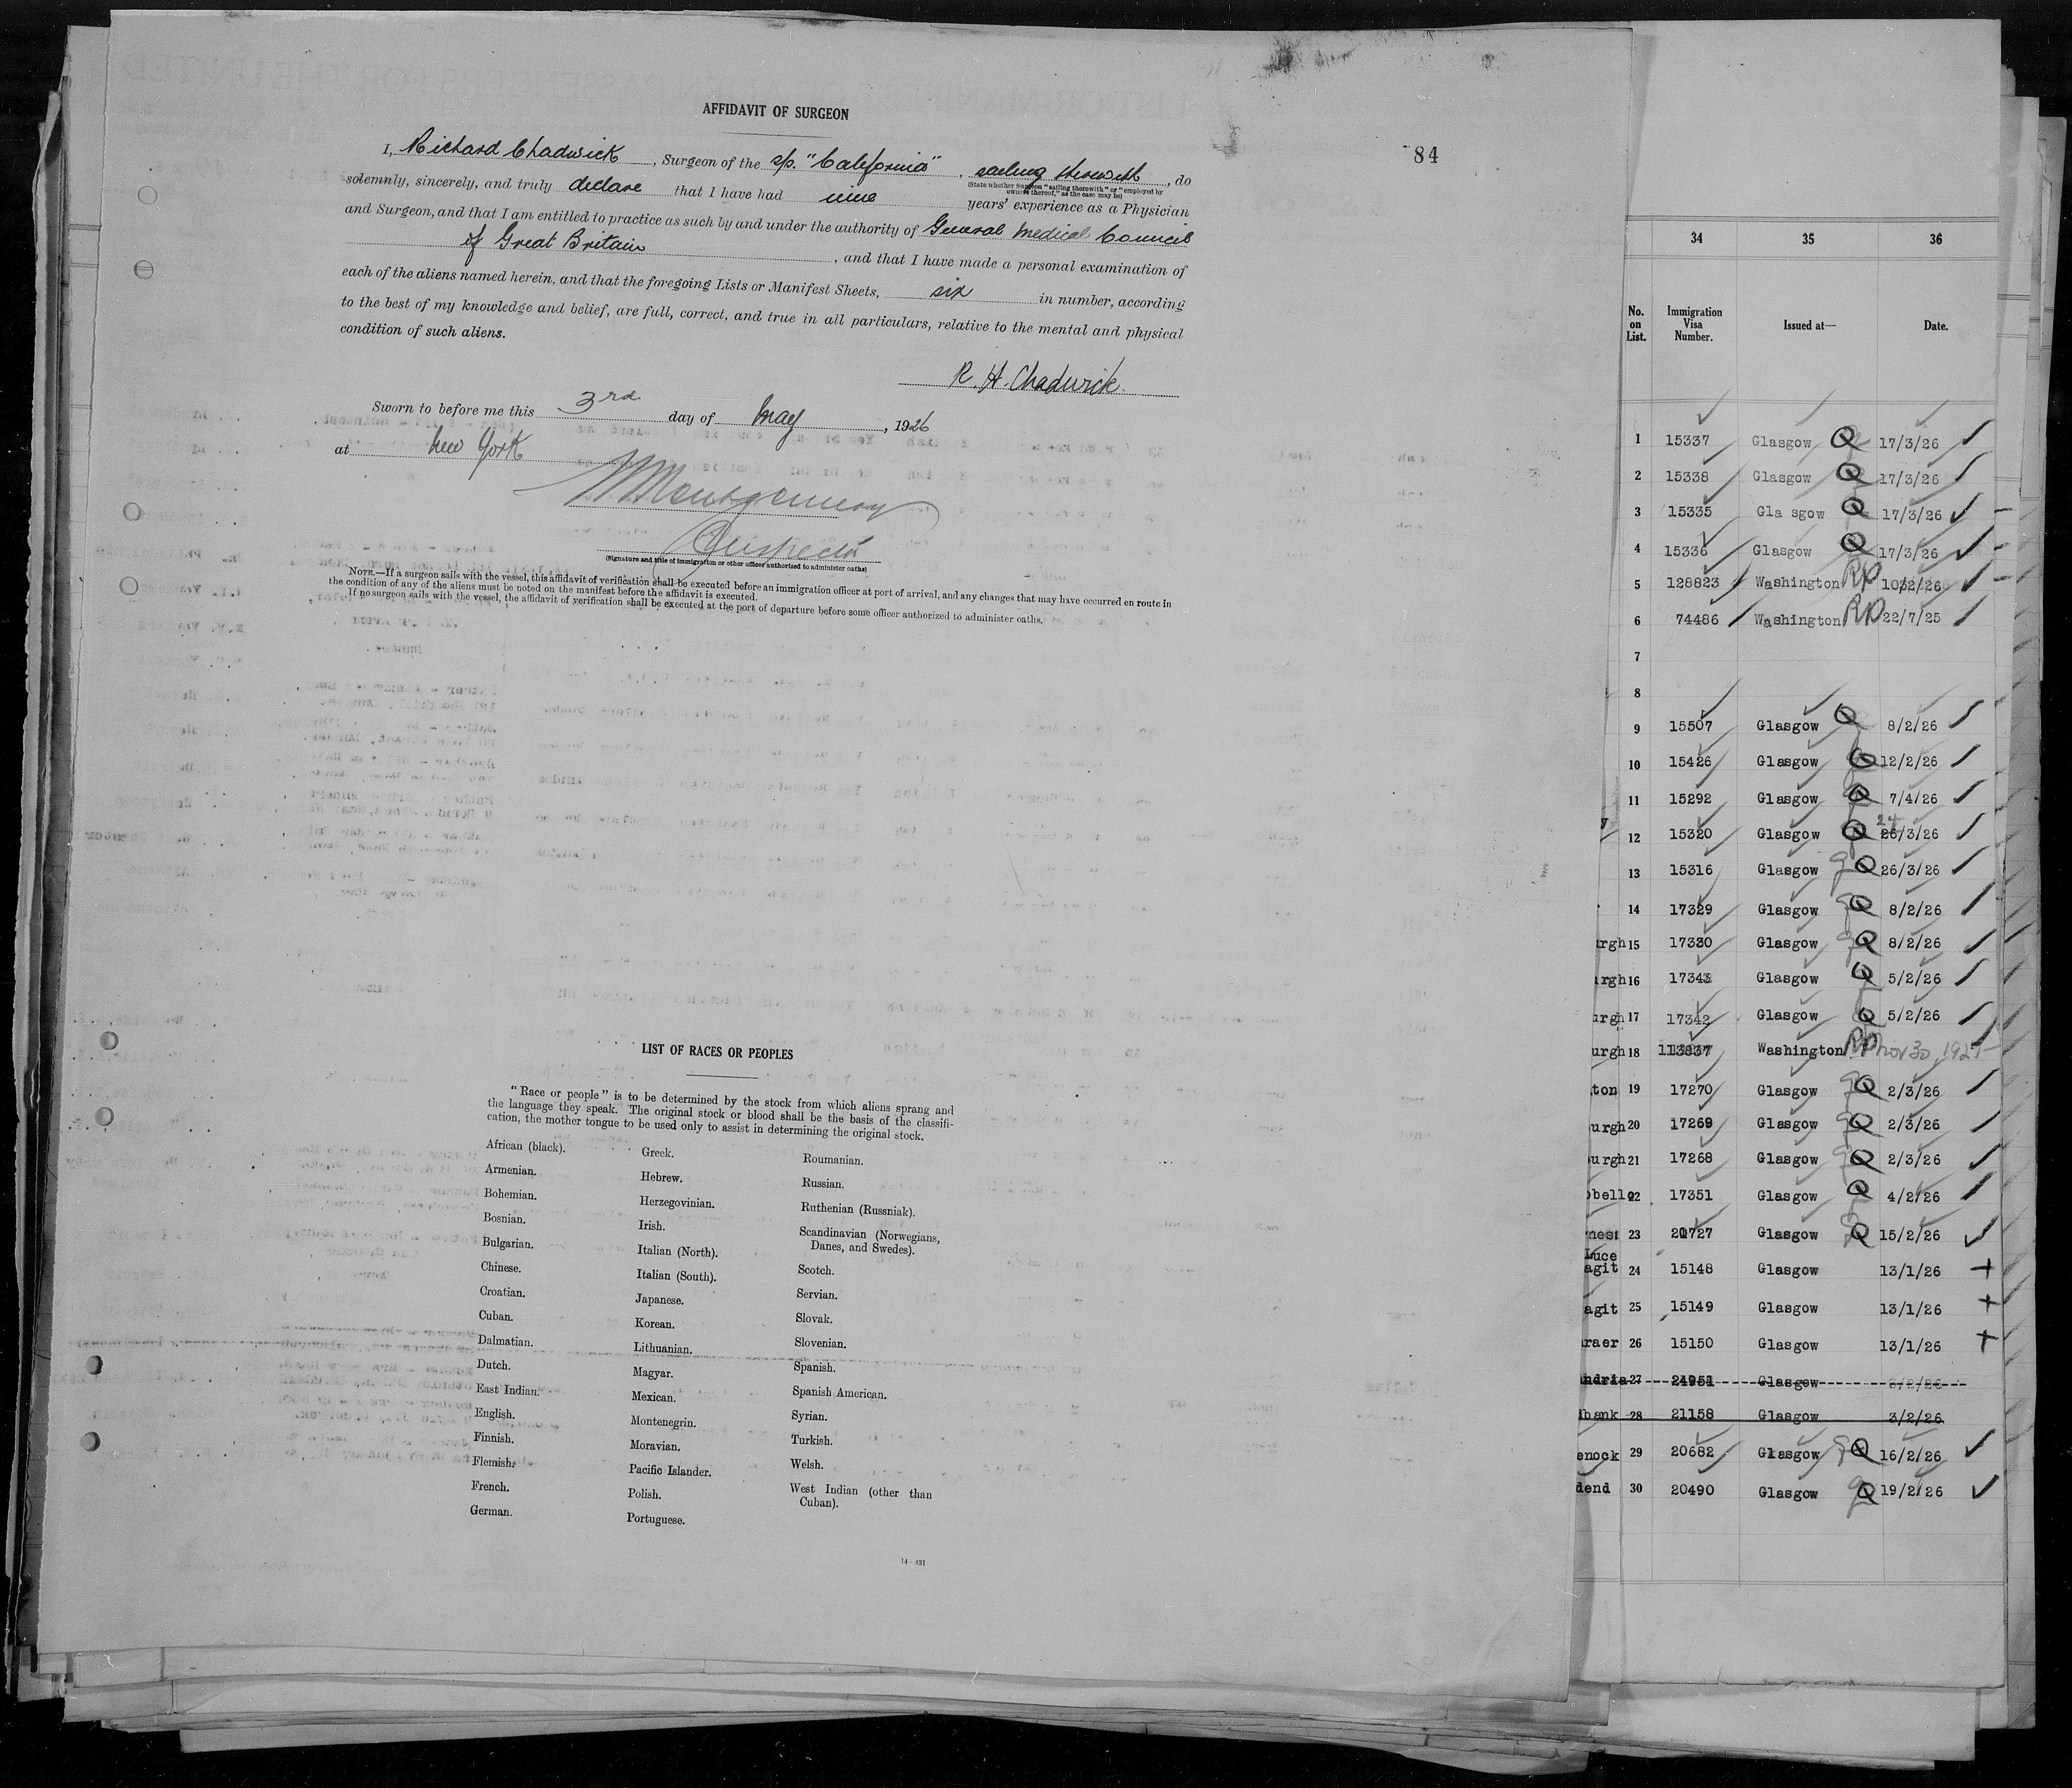 AFFIDAVIT OF SURGEON
84
I, Richard Chadwick, Surgeon of the s/s. "California", sailing therewith, do
(State whether Surgeon "sailing therewith" or "employed by
owners thereof," as the case may be)
solemnly, sincerely, and truly declare that I have had nine years' experience as a Physician
and Surgeon, and that I am entitled to practice as such by and under the authority of General Medical Council
of Great Britain, and that I have made a personal examination of
each of the aliens named herein, and that the foregoing Lists or Manifest Sheets, six in number, according
to the best of my knowledge and belief, are full, correct, and true in all particulars, relative to the mental and physical
condition of such aliens.
R. H. Chadwick.
Sworn to before me this 3rd day of May, 1926
at New York
Montgomery
Inspector
(Signature and title of immigration or other officer authorized to administer oaths)
NOTE.—If a surgeon sails with the vessel, this affidavit of verification shall be executed before an immigration officer at port of arrival, and any changes that may have occurred en route in
the condition of any of the aliens must be noted on the manifest before the affidavit is executed.
If no surgeon sails with the vessel, the affidavit of verification shall be executed at the port of departure before some officer authorized to administer oaths.
LIST OF RACES OR PEOPLES
"Race or people" is to be determined by the stock from which aliens sprang and
the language they speak. The original stock or blood shall be the basis of the classifi-
cation, the mother tongue to be used only to assist in determining the original stock.
African (black).
Armenian.
Bohemian.
Bosnian.
Bulgarian.
Chinese.
Croatian.
Cuban.
Dalmatian.
Dutch.
East Indian.
English.
Finnish.
Flemish.
French.
German.
Greek.
Hebrew.
Herzegovinian.
Irish.
Italian (North).
Italian (South).
Japanese.
Korean.
Lithuanian.
Magyar.
Mexican.
Montenegrin.
Moravian.
Pacific Islander.
Polish.
Portuguese.
Roumanian.
Russian.
Ruthenian (Russniak).
Scandinavian (Norwegians,
Danes, and Swedes).
Scotch.
Servian.
Slovak.
Slovenian.
Spanish.
Spanish American.
Syrian.
Turkish.
Welsh.
West Indian (other than
Cuban).
14—431
34 35 36
No. on List. Immigration Visa Number. Issued at— Date.
1 15337 Glasgow Q 17/3/26
2 15338 Glasgow Q 17/3/26
3 15335 Gla sgow Q 17/3/26
4 15336 Glasgow Q 17/3/26
5 128823 Washington RP
6 74486 Washington RP 22/7/25
7
8
9 15507 Glasgow Q 8/2/26
10 15426 Glasgow Q 12/2/26
11 15292 Glasgow Q 7/4/26
24
12 15320 Glasgow Q /3/26
13 15316 Glasgow Q 26/3/26
14 17329 Glasgow Q 8/2/26
urgh 15 17330 Glasgow Q 8/2/26
urgh 16 17343 Glasgow Q 5/2/26
urgh 17 17342 Glasgow Q 5/2/26
urgh 18 113837 Washington RP Nov 30, 192
ton 19 17270 Glasgow Q 2/3/26
urgh 20 17269 Glasgow Q 2/3/26
urgh 21 17268 Glasgow Q 2/3/26
obello 22 17351 Glasgow Q 4/2/26
ness 23 20727 Glasgow Q 15/2/26
Luce
agit 24 15148 Glasgow 13/1/26 +
agit 25 15149 Glasgow 13/1/26 +
raer 26 15150 Glasgow 13/1/26 +
ndria 27 24951 Glasgow
bank 28 21158 Glasgow 3/2/26
enock 29 20682 Glasgow Q 16/2/26
dend 30 20490 Glasgow Q 19/2/26